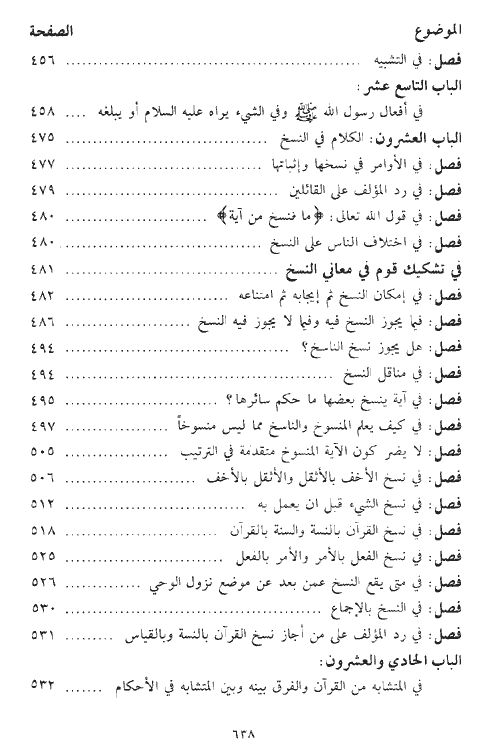 الموضوع الصفحة
فصل: في التشبيه ........................................ ٤٥٦
الباب التاسع عشر:
في أفعال رسول الله ﷺ وفي الشيء يراه عليه السلام أو يبلغه .... ٤٥٨
الباب العشرون: الكلام في النسخ .............................. ٤٧٥
فصل: في الأوامر في نسخها وإثباتها ........................... ٤٧٧
فصل: في رد المؤلف على القائلين .............................. ٤٧٩
فصل: في قول الله تعالى: ﴿ما ننسخ من آية﴾ .................... ٤٨٠
فصل: في اختلاف الناس على النسخ ............................. ٤٨٠
في تشكيك قوم في معاني النسخ ................................ ٤٨١
فصل: في إمكان النسخ ثم إيجابه ثم امتناعه ...................... ٤٨٢
فصل: فيما يجوز النسخ فيه وفيما لا يجوز فيه النسخ .................. ٤٨٦
فصل: هل يجوز نسخ الناسخ؟ ................................. ٤٩٤
فصل: في مناقل النسخ ....................................... ٤٩٤
فصل: في آية ينسخ بعضها ما حكم سائرها؟ ...................... ٤٩٥
فصل: في كيف يعلم المنسوخ والناسخ مما ليس منسوخاً ................ ٤٩٧
فصل: لا يضر كون الآية المنسوخ متقدمة في الترتيب ................ ٥٠٥
فصل: في نسخ الأخف بالأثقل والأثقل بالأخف .................... ٥٠٦
فصل: في نسخ الشيء قبل ان يعمل به .......................... ٥١٢
فصل: في نسخ القرآن بالنسة والسنة بالقرآن ...................... ٥١٨
فصل: في نسخ الفعل بالأمر والأمر بالفعل ....................... ٥٢٥
فصل: في متى يقع النسخ عمن بعد عن موضع نزول الوحي ............. ٥٢٦
فصل: في النسخ بالإجماع .................................... ٥٣٠
فصل: في رد المؤلف على من أجاز نسخ القرآن بالنسة وبالقياس ......... ٥٣١
الباب الحادي والعشرون:
في المتشابه من القرآن والفرق بينه وبين المتشابه في الأحكام ....... ٥٣٢
٦٣٨